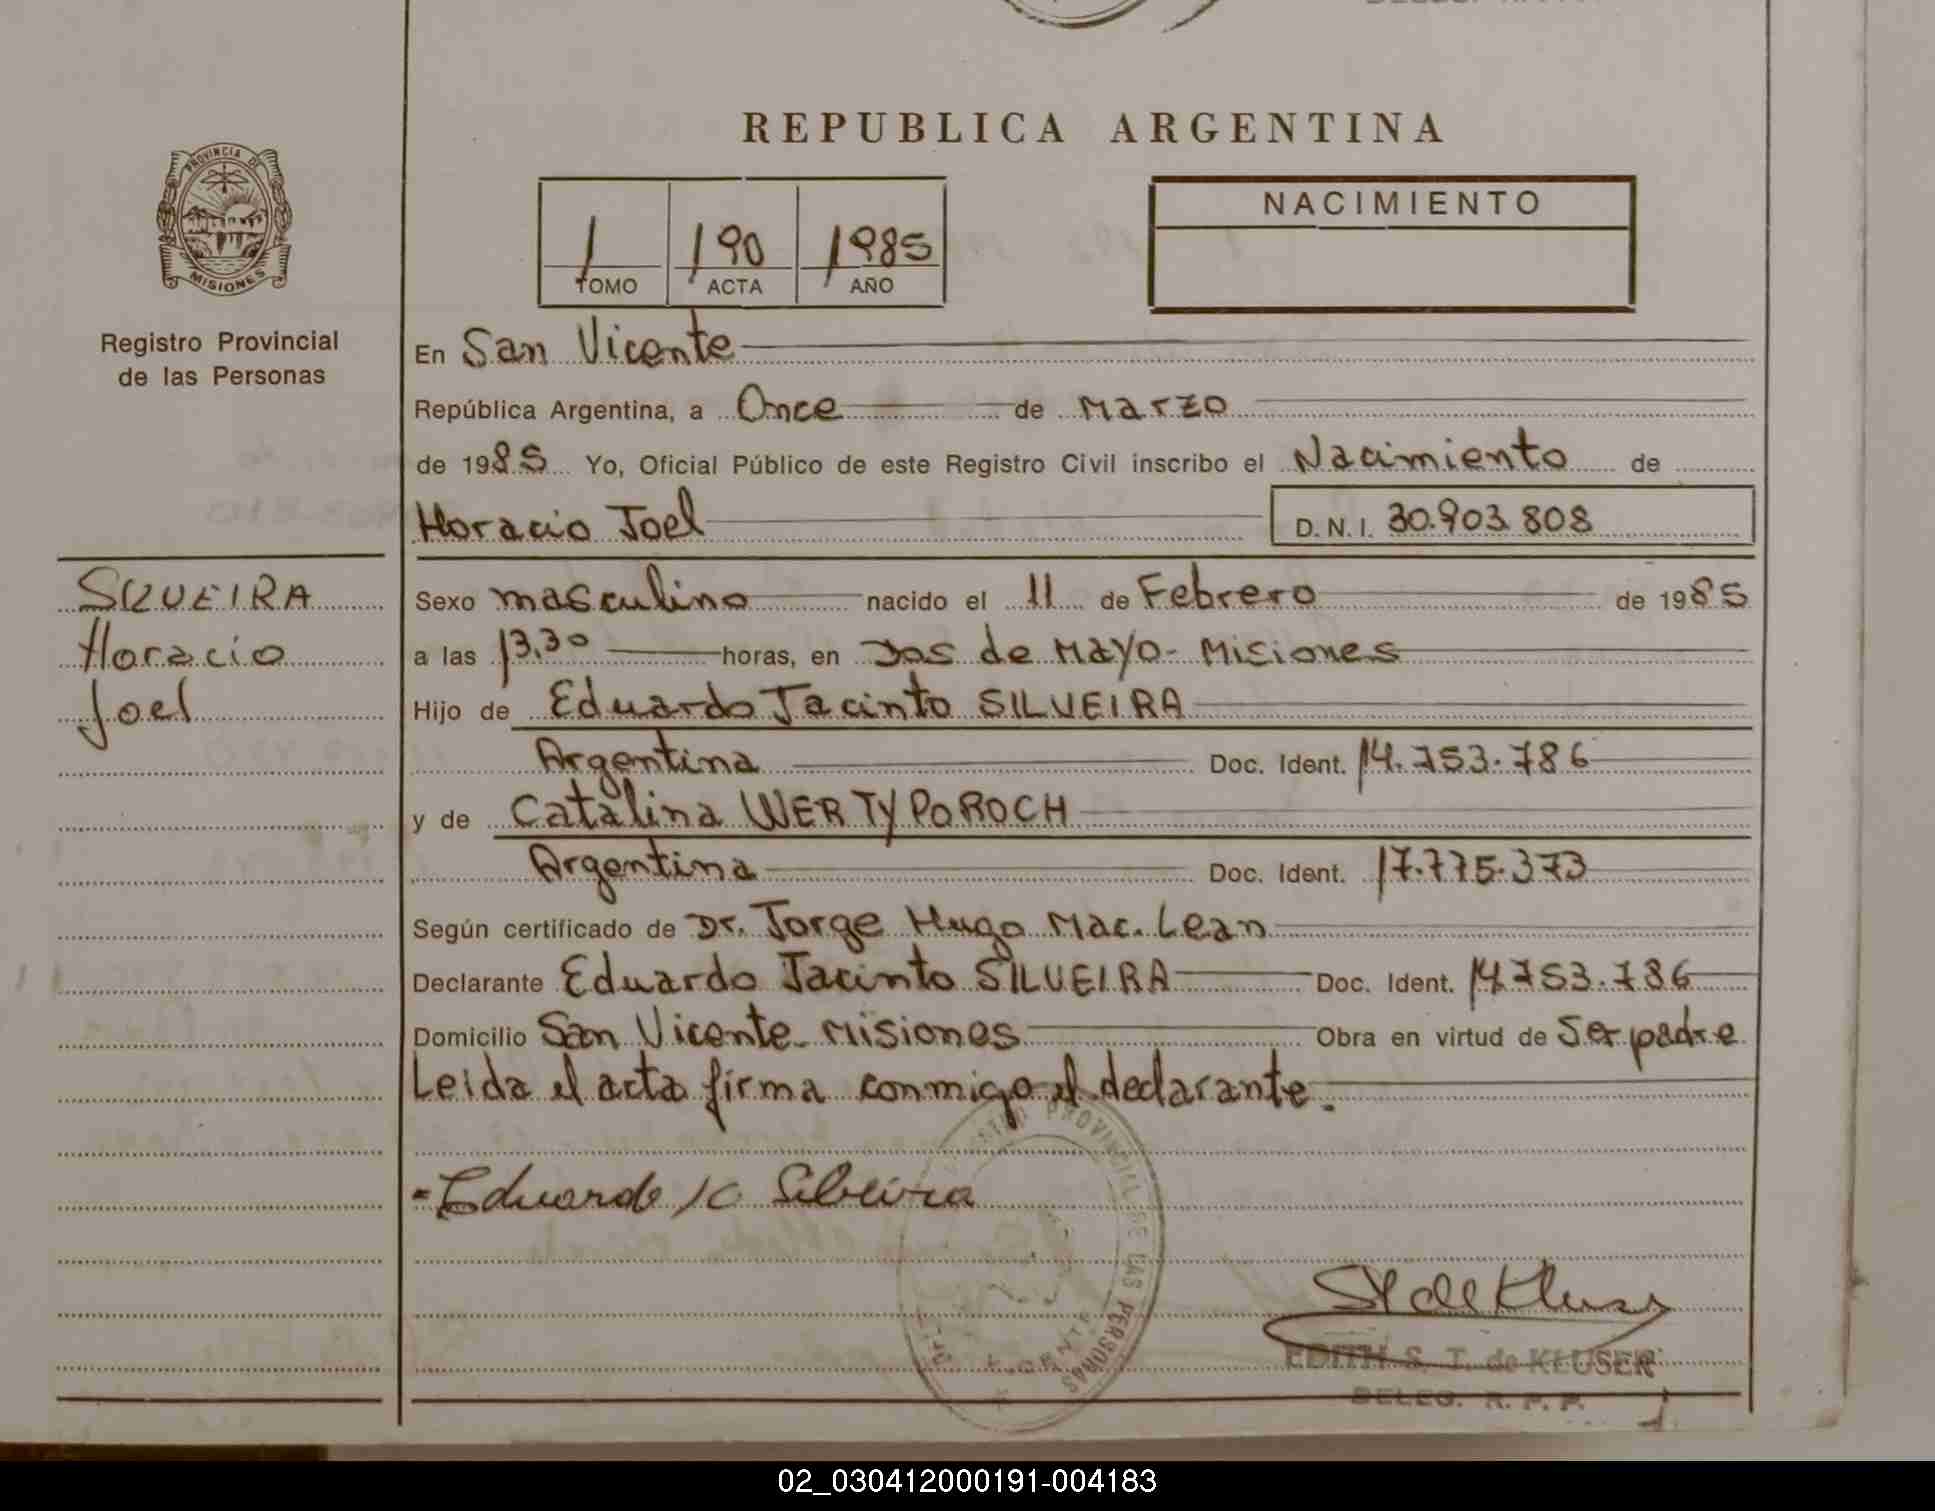 REPUBLICA ARGENTINA
PROVINCIA DE
MISIONES
Registro Provincial
de las Personas
1 190 1985
TOMO ACTA AÑO
NACIMIENTO
En San Vicente
República Argentina, a Once de Marzo
de 1985 Yo, Oficial Público de este Registro Civil inscribo el Nacimiento de
Horacio Joel D.N.I. 30.903.808
SILVEIRA
Horacio
Joel
Sexo masculino nacido el 11 de Febrero de 1985
a las 13,30 horas, en Dos de Mayo - Misiones
Hijo de Eduardo Jacinto SILVEIRA
Argentina Doc. Ident. 14.753.786
y de Catalina WERTYPOROCH
Argentina Doc. Ident. 17.775.373
Según certificado de Dr. Jorge Hugo Mac. Lean
Declarante Eduardo Jacinto SILVEIRA Doc. Ident. 14.753.786
Domicilio San Vicente - Misiones Obra en virtud de Ser padre
Leida el acta firma conmigo el declarante.
PROVINCIAL DE LAS PERSONAS
Eduardo Silveira
ST de Kluser
EDITH S. T. de KLUSER
DELEG. R. P. P.
02_030412000191-004183